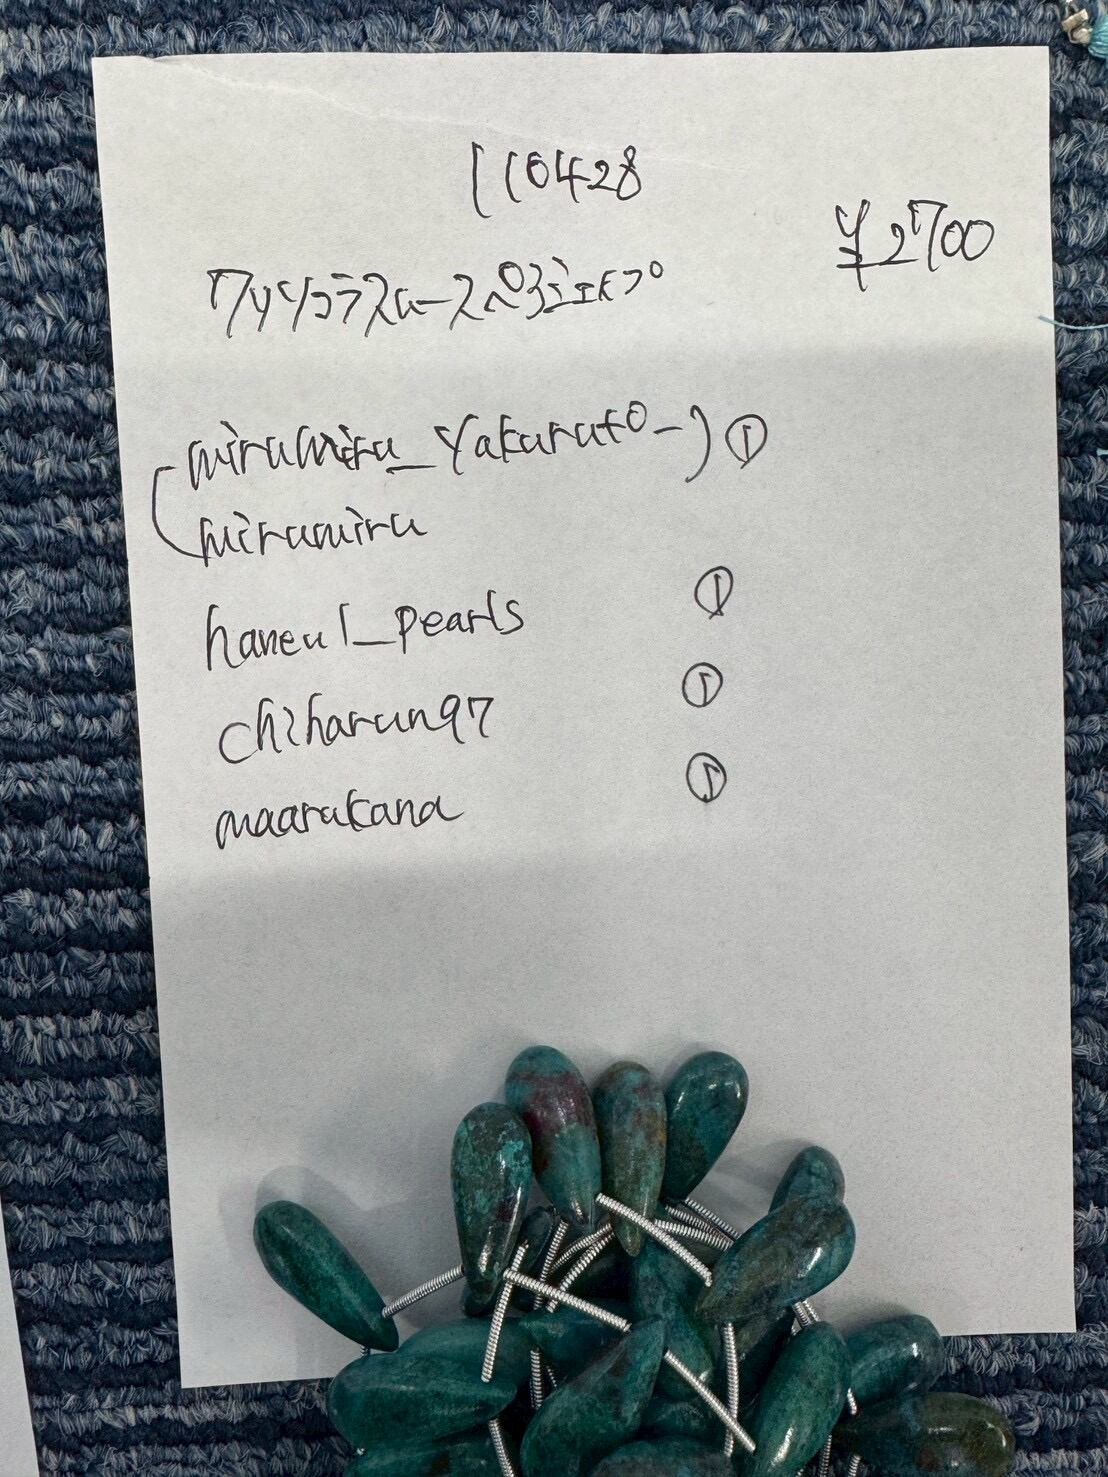 110428
¥2700
クリソコラスムースペアシェイプ
mirumiru_yakuruto-
mirumiru
①
haneul_pearls ①
chiharun97 ①
maarukana ①